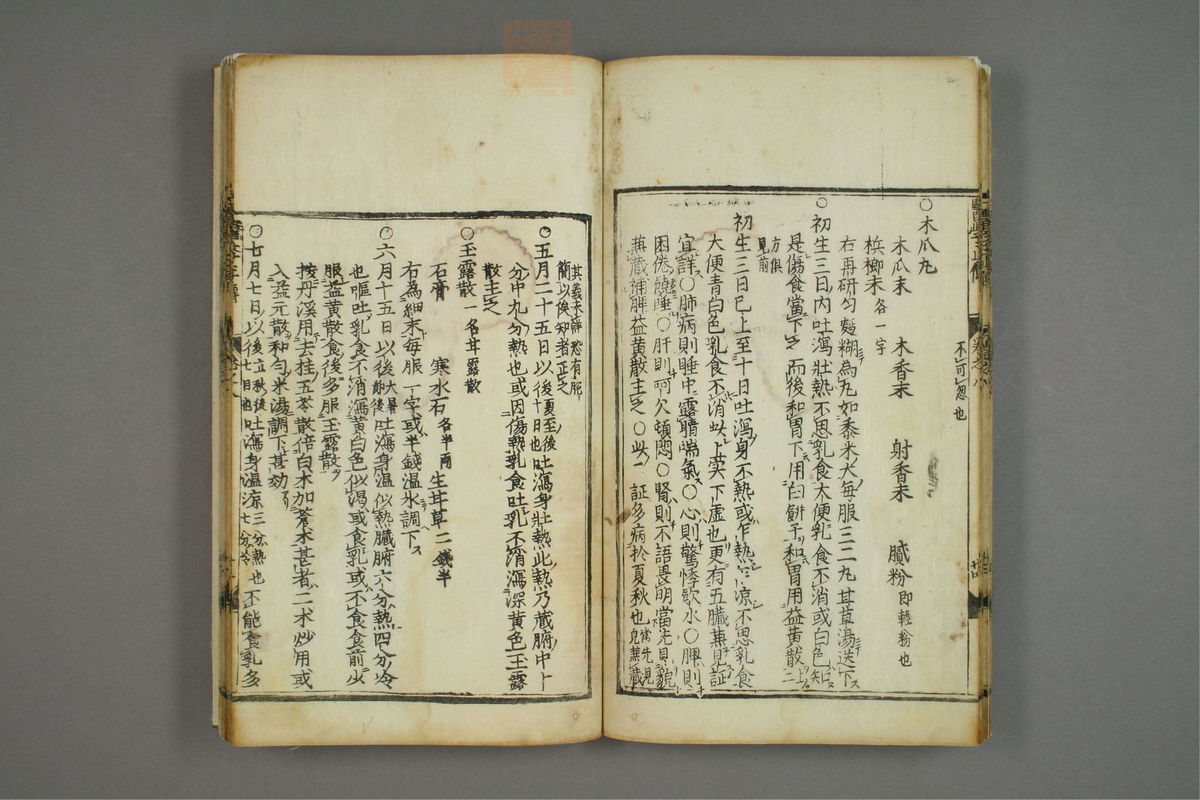 不可忽也
○木瓜丸
木瓜末 木香末 射香末 膩粉即輕粉也
梹榔末各一字
右再研勻麵糊為丸如黍米大每服三二丸甘草湯送下
○初生三日內吐瀉壯熱不思乳食大便乳食不消或白色知
是傷食當下之而後和胃下用白餅子和胃用益黃散上二
方俱見前
初生三日已上至十日吐瀉身不熱或乍熱乍涼不思乳食
大便青白色乳食不消此上實下虛也更有五臟兼見証
宜詳○肺病則睡中露睛喘氣○心則驚悸飲水○脾則
困倦饒睡○肝則呵欠頓悶○腎則不語畏明當先見
兼臟補脾益黃散主之○此二証多病於夏秋也當先見兒兼臟
其義未詳恐有
簡以俟知者正之
○五月二十五日以後夏至後十日也吐瀉身壯熱此熱乃藏腑中
分中九分熱也或因傷熱乳食吐乳不消瀉深黃色玉露
散主之
○玉露散 名甘露散
石膏 寒水石各半兩 生甘草二錢半
右為細末每服一字或半錢溫水調下
○六月十五日以後大暑後吐瀉身溫似熱臟腑六分熱四分冷
也嘔吐乳食不消瀉黃白色似渴或食乳或不食食前少
服益黃散食後多服玉露散
按丹溪用去桂五苓散倍白朮加蒼朮甚者二朮炒用或
入益元散和勻米湯調下甚効
○七月七日以後立秋後七日也吐瀉身溫涼三分熱七分冷也不能食乳多